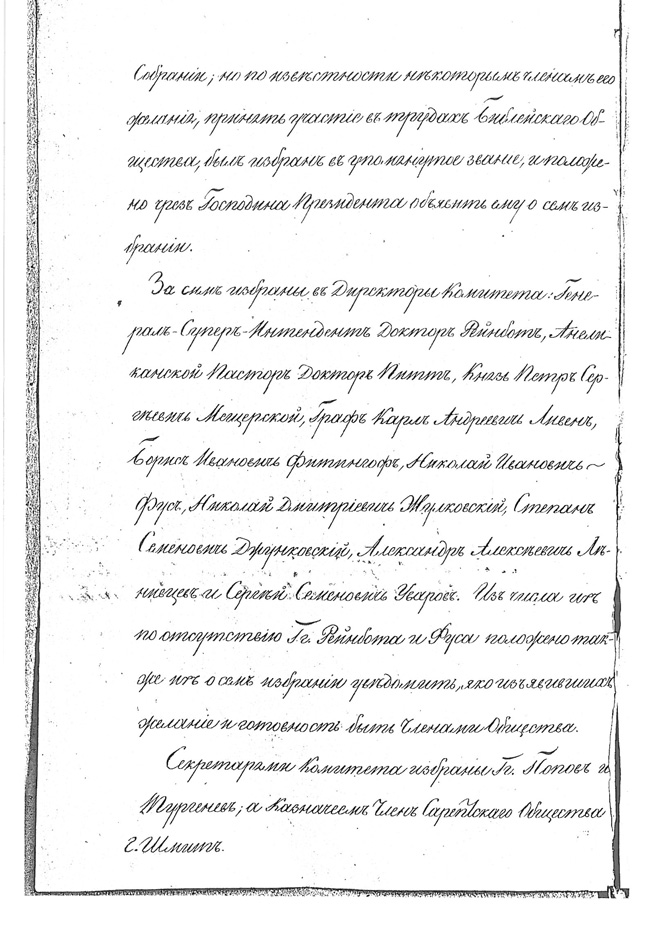 Собраніи; но по извѣстности нѣкоторымъ членамъ его
желанія, принять участіе въ трудахъ Библейскаго Об-
щества, былъ избранъ въ упомянутое званіе, и положе-
но чрезъ Господина Президента объявить ему о семъ из-
браніи.
За симъ избраны въ Директоры Комитета: Гене-
ралъ-Суперъ-Интендентъ Докторъ Рейнботъ, Англи-
канской Пасторъ Докторъ Питтъ, Князь Петръ Сер-
гѣевичь Мещерской, Графъ Карлъ Андреевичь Ливенъ,
Борисъ Ивановичь Фитингофъ, Николай Ивановичь
Фусъ, Николай Дмитріевичь Жулковскій, Степанъ
Семеновичь Джунковскій, Александръ Алексѣевичь Лѣ-
нивцевъ и Сергѣй Семеновичь Уваровъ. Изъ числа ихъ
по отсутствію Гг. Рейнбота и Фуса положено так-
же ихъ о семъ избраніи увѣдомить, яко изъявившихъ
желаніе и готовность быть Членами Общества.
Секретарями Комитета избраны Гг. Поповъ и
Тургеневъ; а Казначеемъ Членъ Сарептскаго Общества
Г. Шмитъ.